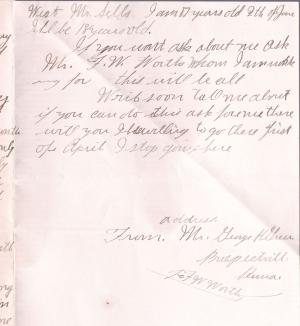 West Mr Sells. I am 17 years old 9th of June
I'll be 18 years old.
If you want ask about me ask
Mr. F.W. Worth whom I am work
ing for this will be all
Write soon tell me about
if you can do this ask for me there
will you I willing to go there first
of April I stop going here
address
From. Mr. George
Penna.
F W Worth